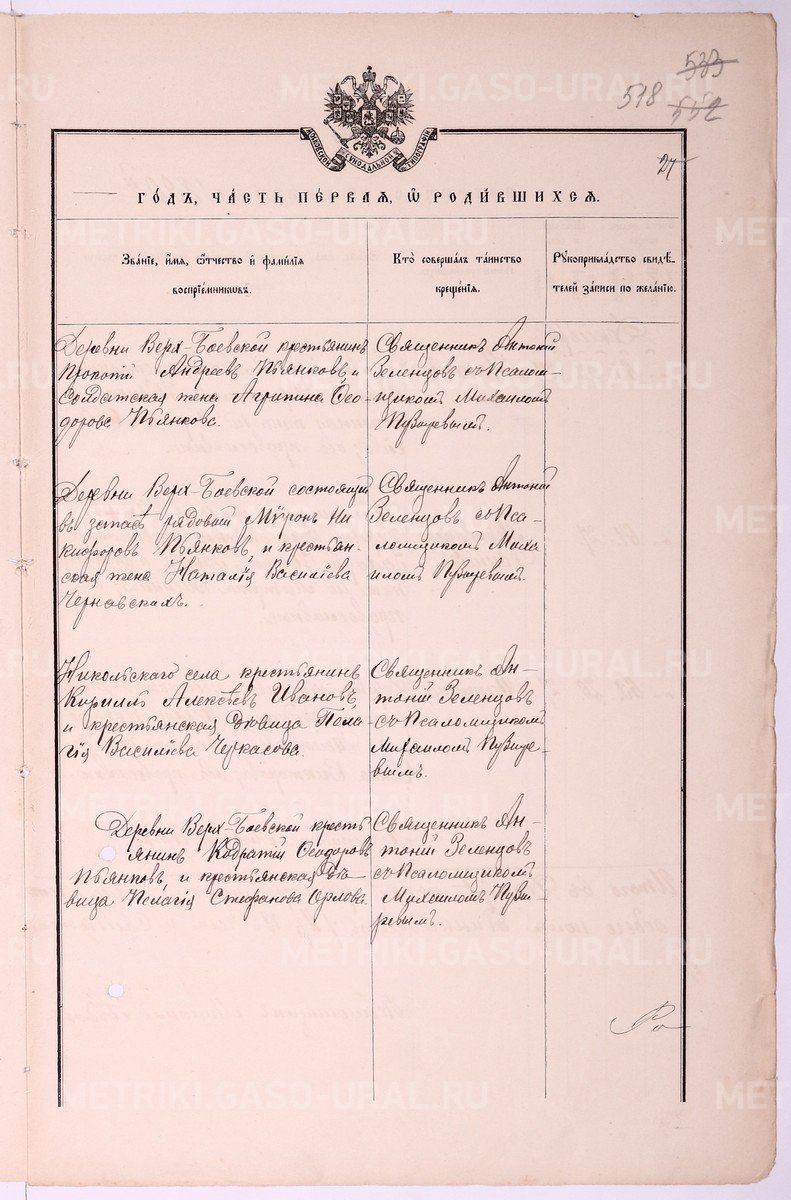 METRIKI.GASO-URAL.RU
533
518 552
27
МОСКОВСКОЙ СИНОДАЛЬНОЙ ТИПОГРАФІИ
ГО́ДЪ, ЧА́СТЬ ПЕ́РВАѦ, Ѡ҆ РОДИ́ВШИХСѦ.
Зва́нїе, и҆́мѧ, ѻ҆́тчество и҆ фами́лїѧ
воспрїе́мникѡвъ.
Кто̀ соверша́лъ та́инство
креще́нїѧ.
Рꙋкоприкла́дство свидѣ́-
телей за́писи по жела́нїю.
Деревни Верх-Боевской крестьянинъ
Прокопій Андреевъ Пьянковъ и
Солдатская жена Агрипина Ѳео-
дорова Пьянкова.
Священникъ Антоній
Зеленцовъ съ Псалом-
щикомъ Михаиломъ
Пузыревымъ.
Деревни Верх-Боевской состоящій
въ запасѣ рядовой Мѵронъ Ни
кифоровъ Пьянковъ, и крестьян-
ская жена Наталія Василіева
Чернавскихъ.
Священникъ Антоній
Зеленцовъ съ Пса-
ломщикомъ Миха
иломъ Пузыревымъ.
Никольскаго села крестьянинъ
Кириллъ Алексѣевъ Ивановъ,
и крестьянская дѣвица Пела-
гія Василіева Черкасова.
Священникъ Ан-
тоній Зеленцовъ
съ Псаломщикомъ
Михаиломъ Пузыре-
вымъ.
Деревни Верх-Боевской кресть
янинъ Кодратій Ѳеодоровъ
Пьянковъ, и крестьянская дѣ-
вица Пелагія Стефанова Орлова.
Священникъ Ан-
тоній Зеленцовъ
съ Псаломщикомъ
Михаиломъ Пузы-
ревымъ.
Ро